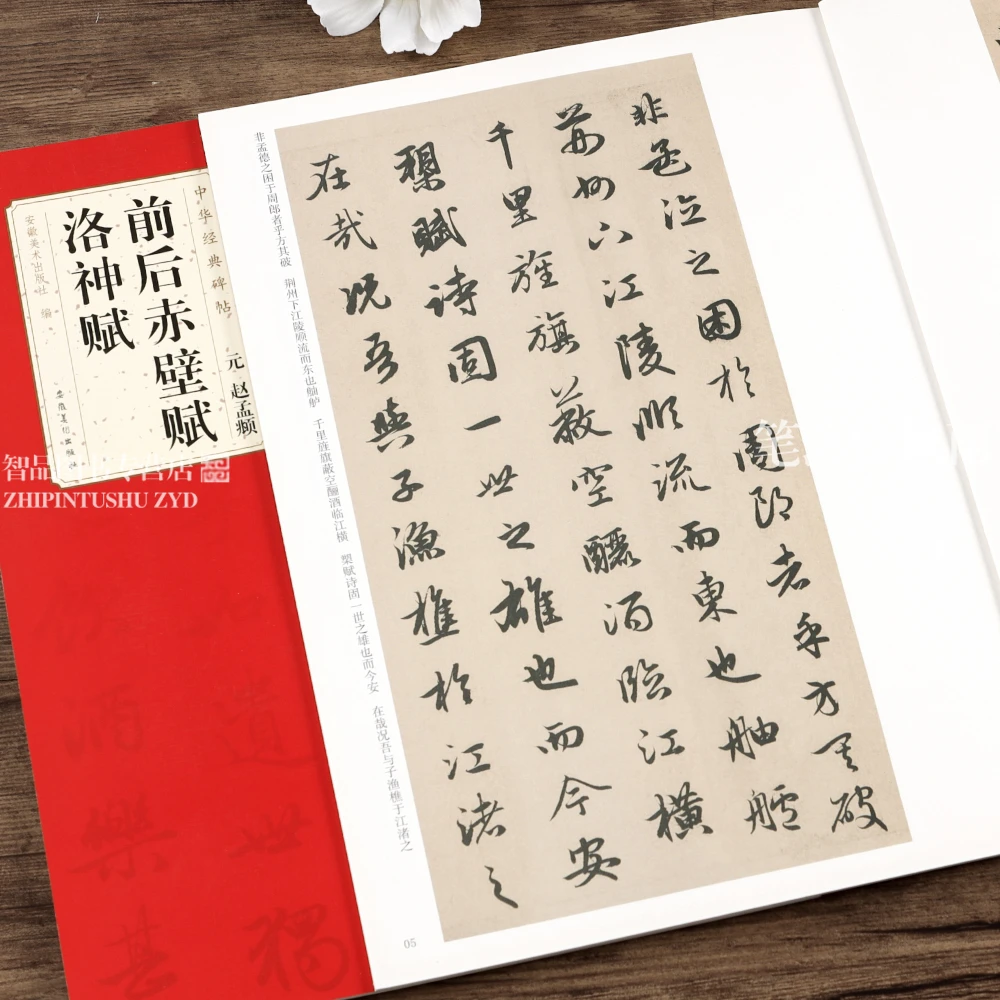 非孟德之困於周郎者乎方其破
荊州下江陵順流而東也舳艫
千里旌旗蔽空釃酒臨江橫
槊賦詩固一世之雄也而今安
在哉況吾與子漁樵於江渚之
非孟德之困于周郎者乎方其破 荆州下江陵顺流而东也舳舻 千里旌旗蔽空酾酒临江横 槊赋诗固一世之雄也而今安 在哉况吾与子渔樵于江渚之
05
中华经典碑帖
元 赵孟頫
前后赤壁赋
洛神赋
安徽美术出版社 编
安徽美术出版社
智品
营店
ZHIPINTUSHU ZYD
遺世獨
酒樂甚
笔